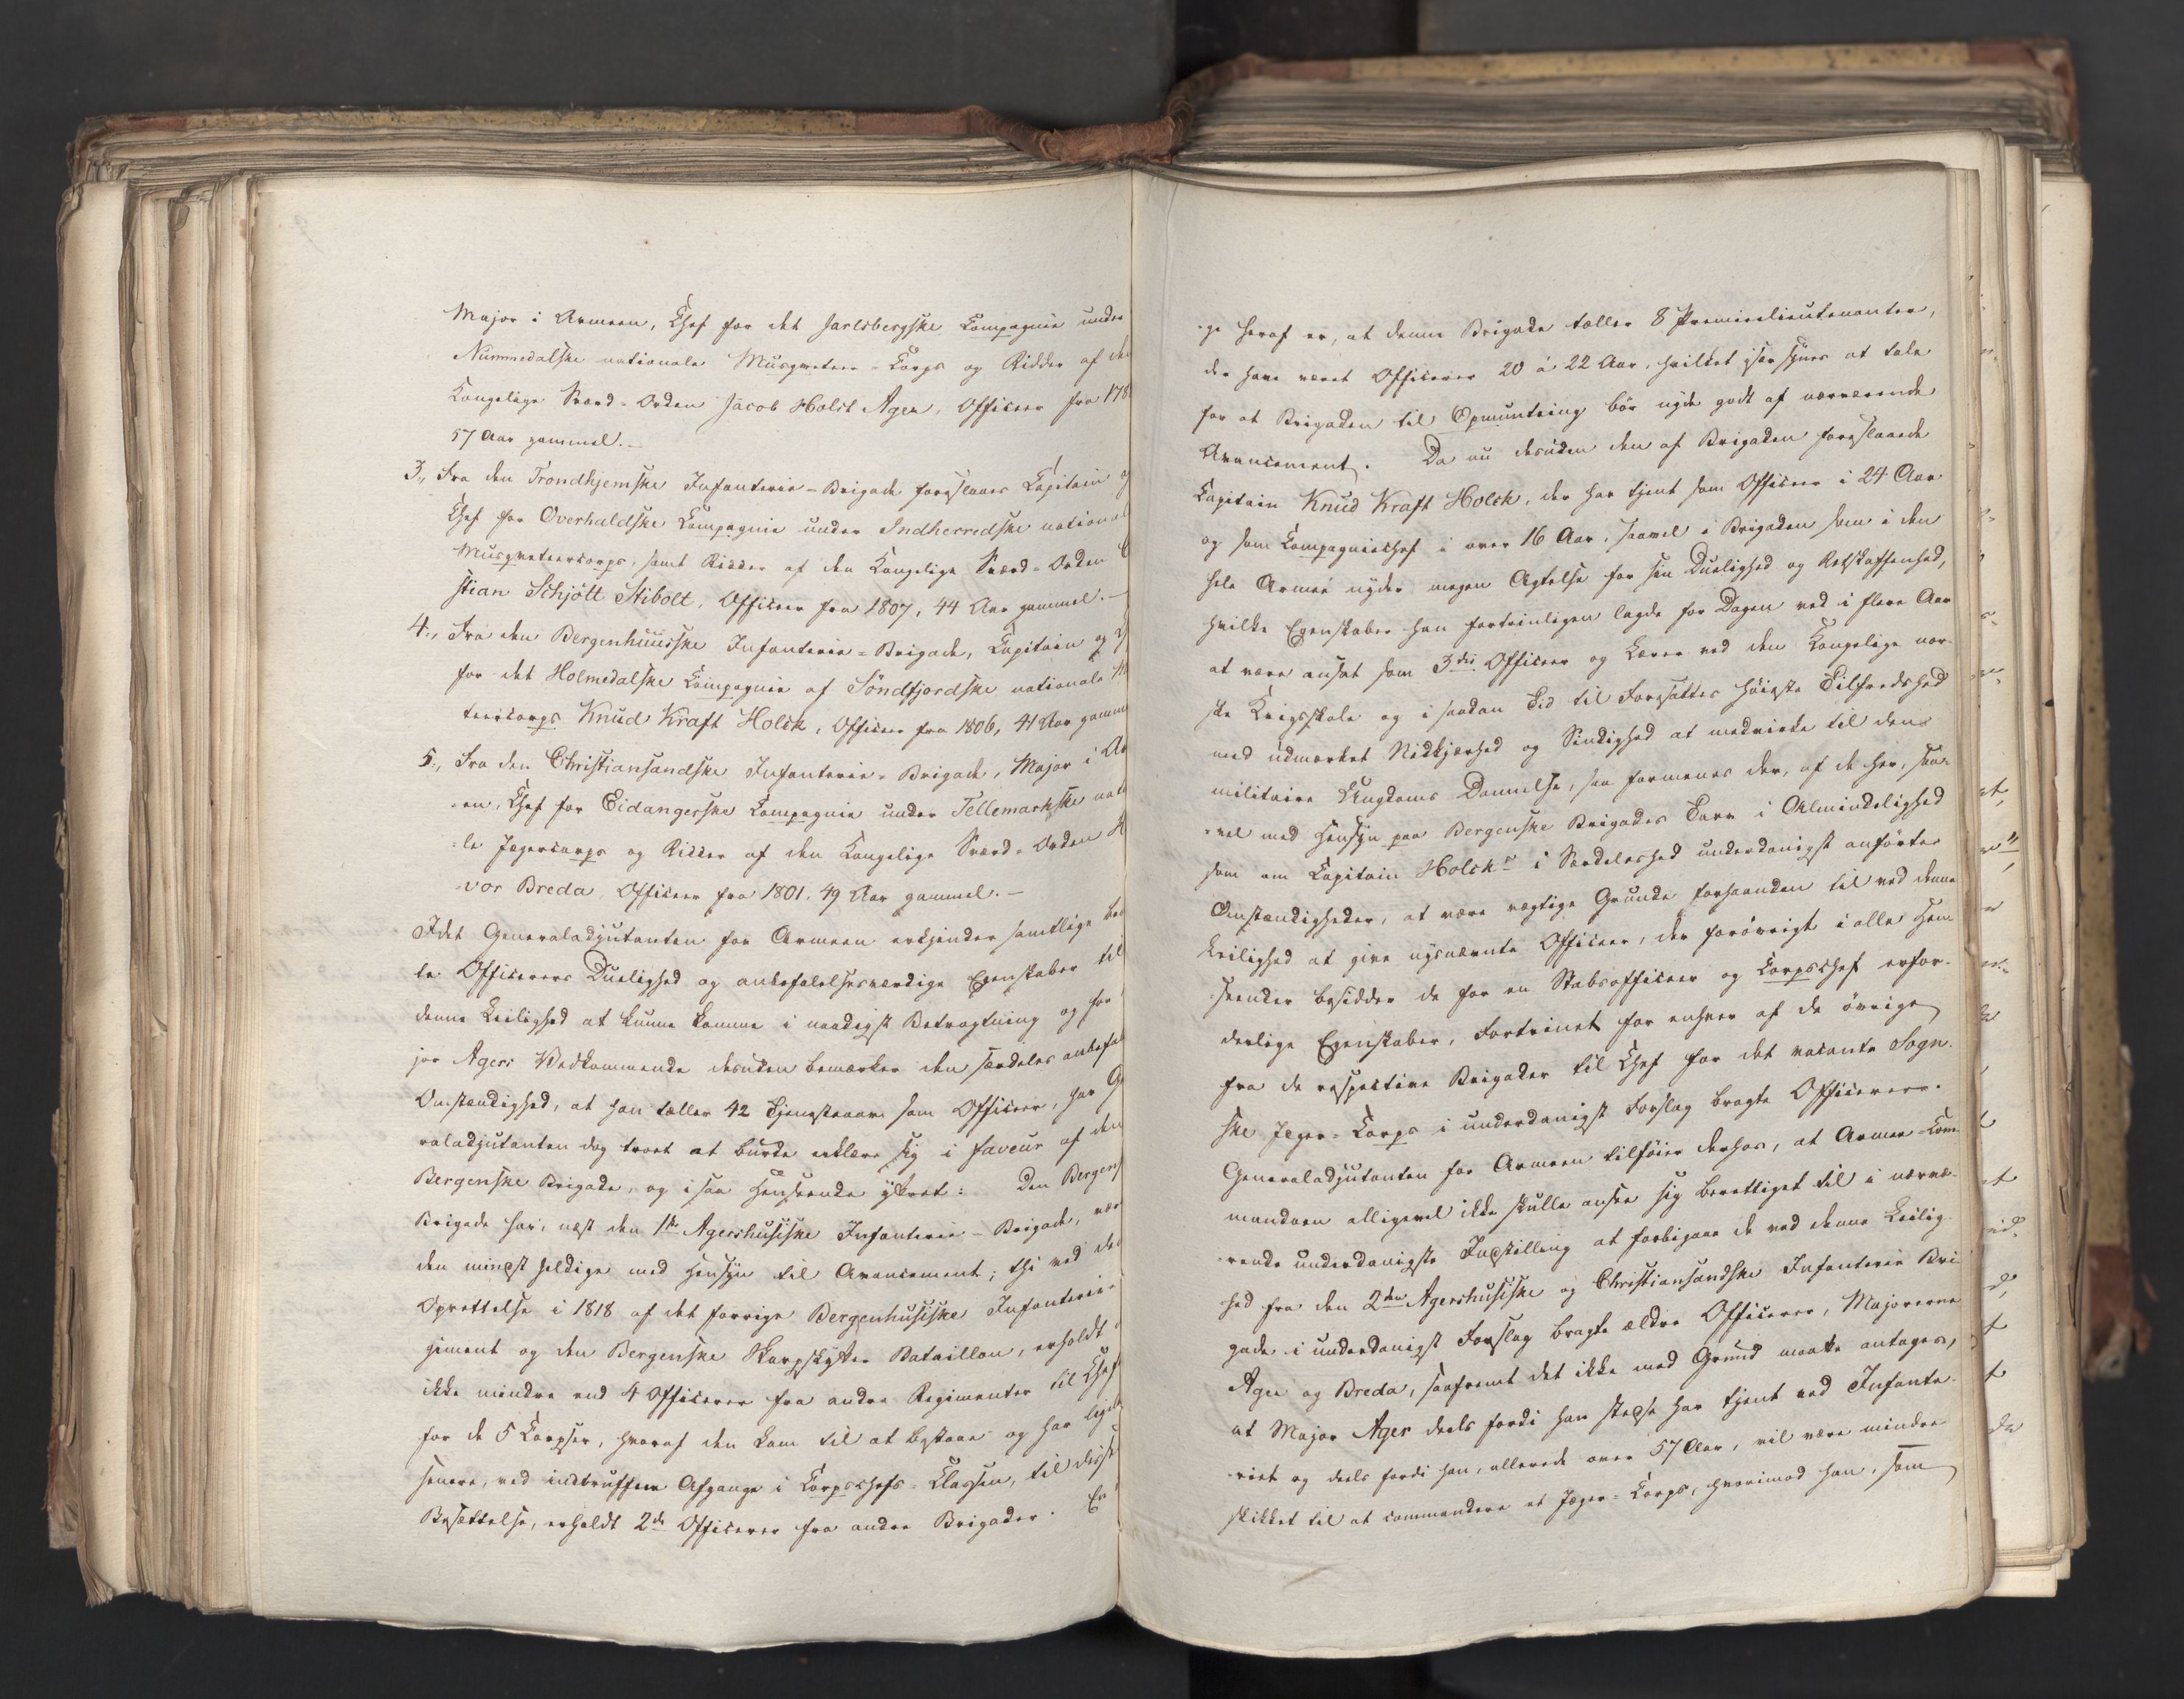 Major i Armeen, Chef for det Jarlsbergske Compagnie under
Nummedalske nationale Musqveteer-Corps og Ridder af den
Kongelige Sværd-Orden Jacob Holst Ager, Officeer fra 178
57 Aar gammel.-
3., Fra den Trondhjemske Infanterie-Brigade foreslaaes Capitain o
Chef for Overhaldske Compagnie under Indherredske national
Musqveteercorps, samt Ridder af den Kongelige Sværd-Orden C
stian Schjött Stibolt, Officeer fra 1807, 44 Aar gammel.-
4., Fra den Bergenhuusske Infanterie-Brigade, Capitain og
for det Holmedalske Compagnie af Söndfjordske nationale M
teercorps Knud Kraft Holck, Officeer fra 1806, 41 Aar gamme
5., Fra den Christiansandske Infanterie-Brigade, Major i Ar
-en, Chef for Eidangerske Compagnie under Tellemarkske nati
-le Jægercorps og Ridder af den Kongelige Sværd-Orden H
-vor Breda, Officeer fra 1801, 49 Aar gammel.-
Idet Generaladjutanten for Armeen erkjender samtlige bem
te Officerers Duelighed og anbefalelsesværdige Egenskaber til
denne Leilighed at kunne komme i naadigst Betragtning og for
jor Agers Vedkommende desuden bemærker den særdeles anbefal
Omstændighed, at han tæller 42 Tjenesteaar som Officeer, har Ge
raladjutanten dog troet at burde erklære sig i faveur af den
Bergenske Brigade, og i saa Henseende yttret: Den Bergens
Brigade har, næst den 1ste Agershusiske Infanterie-Brigade, vær
den mindst heldige med Hensyn til Avancement; thi ved de
Oprettelse i 1818 af det forrige Bergenhusiske Infanterie-
giment og den Bergenske Skarpskytter Bataillon, erholdt
ikke mindre end 4 Officerer fra andre Regimenter til Chef
for de 5 Corpser, hvoraf den kom til at bestaae og har lige
senere, ved indtruffen Afgange i Corpschefs-Classen, til diss
Besættelse, erholdt 2de Officerer fra andre Brigader. En
-ge heraf er, at denne Brigade tæller 8 Premierlieutenanter,
der have været Officerer 20 á 22 Aar, hvilket især synes at tale
for at Brigaden til Opmuntring bör nyde godt af nærværende
Avancement. Da nu desuden den af Brigaden foreslaaede
Capitain Knud Kraft Holck, der har tjent som Officeer i 24 Aar
og som Compagniechef i over 16 Aar, saavel i Brigaden som i den
hele Armeé nyder megen Agtelse for sin Duelighed og Retskaffenhed,
hvilke Egenskaber han fortrinligen lagde for Dagen ved i flere Aar
at være ansat som 3die Officeer og Lærer ved den Kongelige nor-
ske Krigsskole og i saadan Tid til Foresattes höieste Tilfredshed
med udmærket Nidkjærhed og Sindighed at medvirke til dens
militaire Ungdoms Dannelse, saa formenes der, af de her, saa-
-vel med Hensyn paa Bergenske Brigades Tarv i Almindelighed
som om Capitain Holck's i Særdeleshed underdanigst anförte
Omstændigheder, at være vægtige Grunde forhaanden til ved denne
Leilighed at give nysnævnte Officeer, der forövrigt i alle Hen-
seender besidder de for en Stabsofficeer og Corpschef erfor-
derlige Egenskaber, Fortrinet for enhver af de övrige
fra de respective Brigader til Chef for det vacante Sogn-
ske Jæger-Corps i underdanigst Forslag bragte Officerer.
Generaladjutanten for Armeen tilföier derhos, at Armee-Com-
mandoen alligevel ikke skulle ansee sig berettiget til i nærvæ-
rende underdanigste Indstilling at forbigaae de ved denne Leilig-
hed fra den 2den Agershusiske og Christiansandske Infanterie Bri-
gade i underdanigst Forslag bragte ældre Officerer, Majorerne
Ager og Breda, saafremt det ikke med Grund maatte antages,
at Major Ager deels fordi han stedse har tjent ved Infante-
riet og deels fordi han, allerede over 57 Aar, vil være mindre
skikket til at commandere et Jæger-Corps, hvorimod han, som